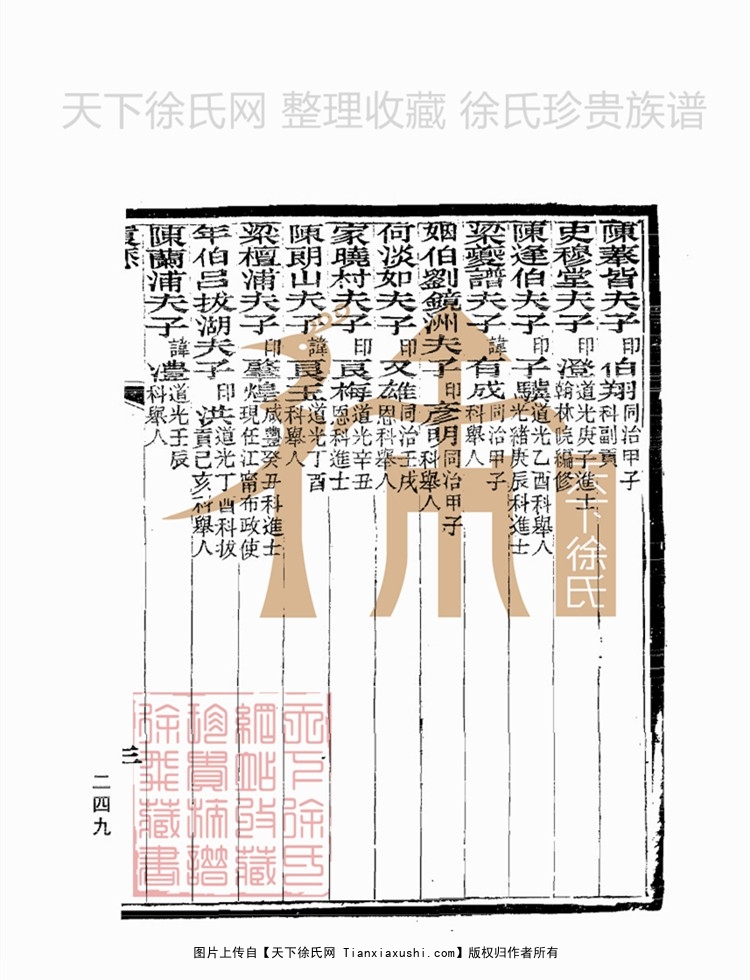 天下徐氏网 整理收藏 徐氏珍贵族谱
陳奉皆夫子 印 伯翔 同治甲子科副貢
史穆堂夫子 印 澄 道光庚子進士翰林院編修
陳逢伯夫子 印 子驥 道光乙酉科舉人光緒庚辰科進士
梁夔譜夫子 諱 有成 同治甲子科舉人
姻伯劉鏡洲夫子 印 彥明 同治甲子科舉人
荷淡如夫子 印 文雄 同治壬戌恩科舉人
家曉村夫子 印 良梅 道光辛丑恩科進士
陳朗山夫子 諱 良玉 道光丁酉科舉人
梁檀浦夫子 印 肇煌 咸豐癸丑科進士現任江甯布政使
年伯呂拔湖夫子 印 洪 道光丁酉科拔貢己亥科舉人
陳蘭浦夫子 諱 澧 道光壬辰科舉人
三
二四九
天下徐氏
天下徐氏網站收藏珍貴族譜徐氏藏書
图片上传自【天下徐氏网 Tianxiaxushi.com】版权归作者所有